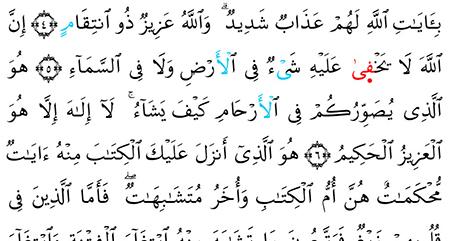 بِـَٔايَـٰتِ ٱللَّهِ لَهُمْ عَذَابٌ شَدِيدٌ ۗ وَٱللَّهُ عَزِيزٌ ذُو ٱنتِقَامٍ ﴿٤﴾ إِنَّ
ٱللَّهَ لَا يَخْفَىٰ عَلَيْهِ شَىْءٌ فِى ٱلْأَرْضِ وَلَا فِى ٱلسَّمَآءِ ﴿٥﴾ هُوَ
ٱلَّذِى يُصَوِّرُكُمْ فِى ٱلْأَرْحَامِ كَيْفَ يَشَآءُ ۚ لَآ إِلَـٰهَ إِلَّا هُوَ
ٱلْعَزِيزُ ٱلْحَكِيمُ ﴿٦﴾ هُوَ ٱلَّذِىٓ أَنزَلَ عَلَيْكَ ٱلْكِتَـٰبَ مِنْهُ ءَايَـٰتٌ
مُّحْكَمَـٰتٌ هُنَّ أُمُّ ٱلْكِتَـٰبِ وَأُخَرُ مُتَشَـٰبِهَـٰتٌ ۖ فَأَمَّا ٱلَّذِينَ فِى